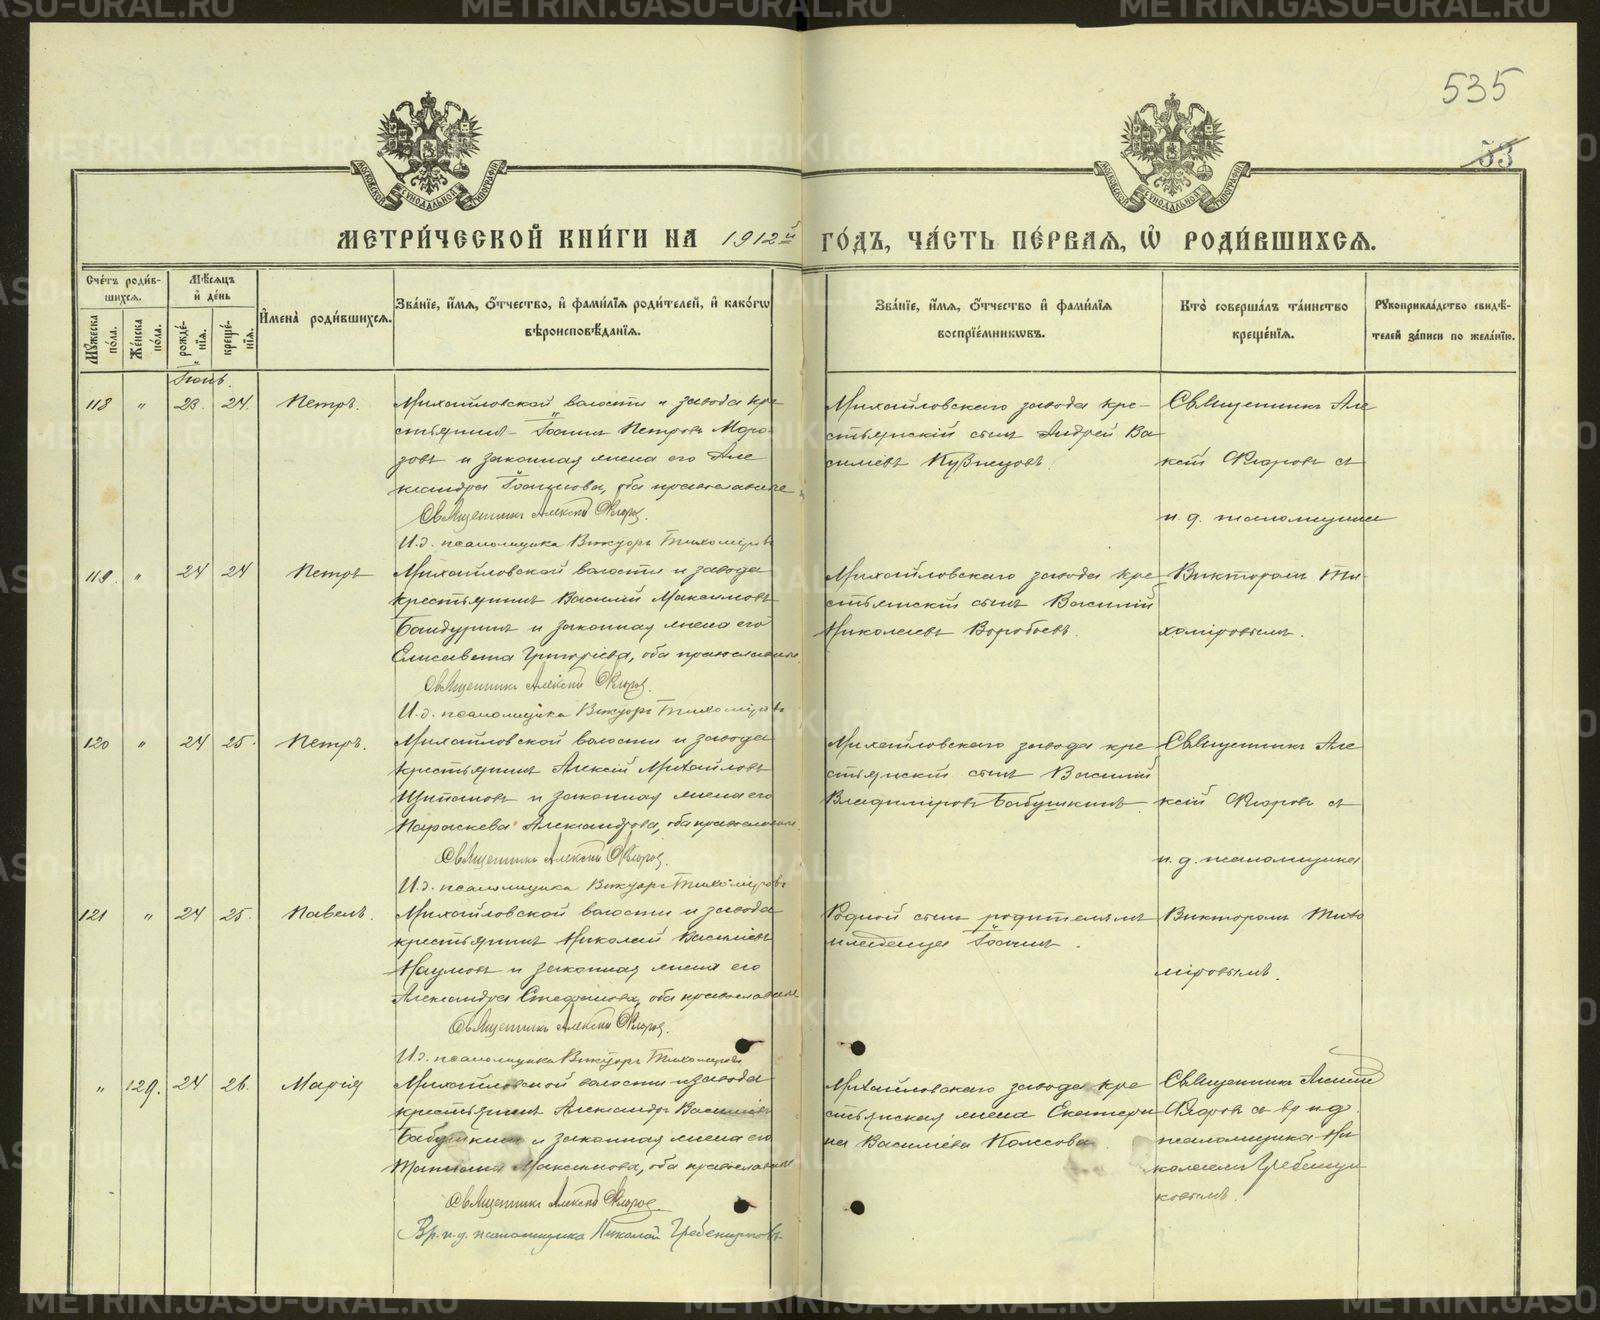 535
53
МОСКОВСКОЙ СѴНОДАЛЬНОЙ ТИПОГРАФІИ
МОСКОВСКОЙ СѴНОДАЛЬНОЙ ТИПОГРАФІИ
МЕТРИ́ЧЕСКОЙ КНИ́ГИ НА 1912й ГО́ДЪ, ЧА́СТЬ ПЕ́РВАЯ, Ѡ РОДИ́ВШИХСЯ.
Сче́тъ роди́в-
шихся.
Мꙋжеска по́ла.
Же́нска по́ла.
Мѣ́сяцъ
и де́нь
рожде́-
нїя.
креще́-
нїя.
Имена̀ роди́вшихся.
Зва́нїе, и́мя, ѻ́тчество, и фами́лїя роди́телей, и како́гѡ
вѣроисповѣ́данїя.
Зва́нїе, и́мя, ѻ́тчество и фами́лїя
воспрїе́мникѡвъ.
Кто̀ соверша́лъ та́инство
креще́нїя.
Рꙋкоприкла́дство свидѣ́-
телей за́писи по жела́нїю.
Іюнь.
118 " 23. 24. Петръ.
Михайловской волости и завода кре
стьянинъ Іоаннъ Петровъ Моро-
зовъ и законная жена его Але
ксандра Іоаннова, оба православные
Священникъ Алексій Флоровъ.
И.д. псаломщика Викторъ Тихоміровъ
Михайловскаго завода кре-
стьянскій сынъ Андрей Ва
силіевъ Кузнецовъ.
Священникъ Але
ксій Флоровъ съ
и. д. псаломщика
119. " 24 24 Петръ
Михайловской волости и завода
крестьянинъ Василій Максимовъ
Бандуринъ и законная жена его
Елисавета Григоріева, оба православные.
Священникъ Алексій Флоровъ.
И.д. псаломщика Викторъ Тихоміровъ
Михайловскаго завода кре-
стьянскій сынъ Василій
Николаевъ Воробьевъ.
Викторомъ Ти-
хоміровымъ.
120 " 24 25. Петръ.
Михайловской волости и завода
крестьянинъ Алексій Михайловъ
Щипановъ и законная жена его
Параскева Александрова, оба православные.
Священникъ Алексій Флоровъ.
И.д. псаломщика Викторъ Тихоміровъ
Михайловскаго завода кре
стьянскій сынъ Василій
Владиміровъ Бабушкинъ
Священникъ Але
ксій Флоровъ съ
и. д. псаломщика
121 " 24 25. Павелъ.
Михайловской волости и завода
крестьянинъ Николай Василіевъ
Наумовъ и законная жена его
Александра Стефанова, оба православные
Священникъ Алексій Флоровъ.
И.д. псаломщика Викторъ Тихоміровъ
Родной сынъ родителямъ
младенца Іоаннъ.
Викторомъ Тихо
міровымъ.
" 129. 24 26. Марія
Михайловской волости и завода
крестьянинъ Александръ Василіевъ
Бабушкинъ и законная жена его
Татіана Максимова, оба православные
Священникъ Алексій Флоровъ.
Вр. и.д. псаломщика Николай Гребенщиковъ.
Михайловскаго завода кре
стьянская жена Екатери
на Василіева Колесова.
Священникъ Алексій
Флоровъ съ вр. и.д.
псаломщика Ни
колаемъ Гребенщи
ковымъ.
METRIKI.GASO-URAL.RU